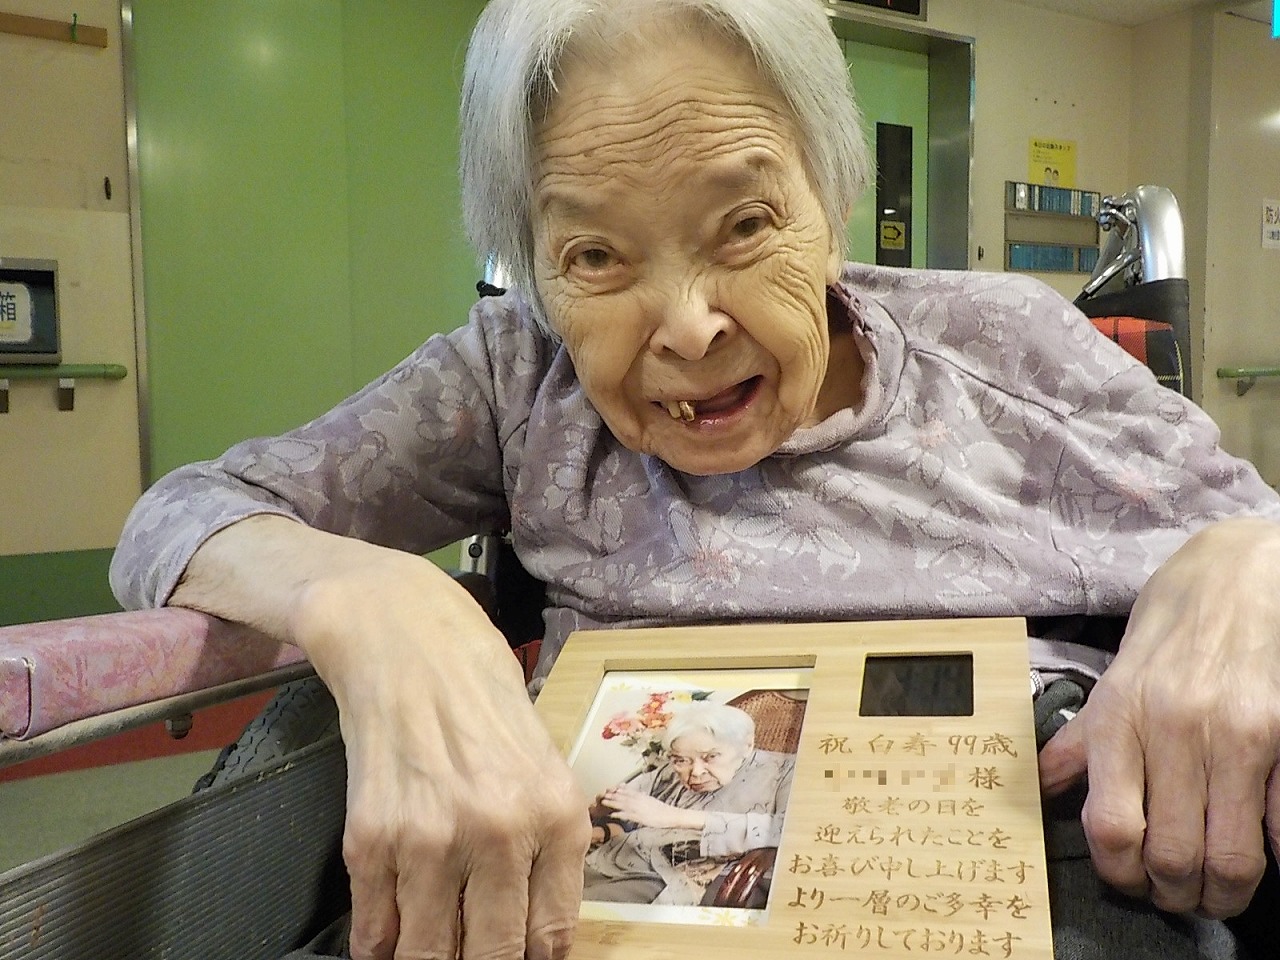 箱
防
祝 白寿 99歳
様
敬老の日を
迎えられたことを
お喜び申し上げます
より一層のご多幸を
お祈りしております